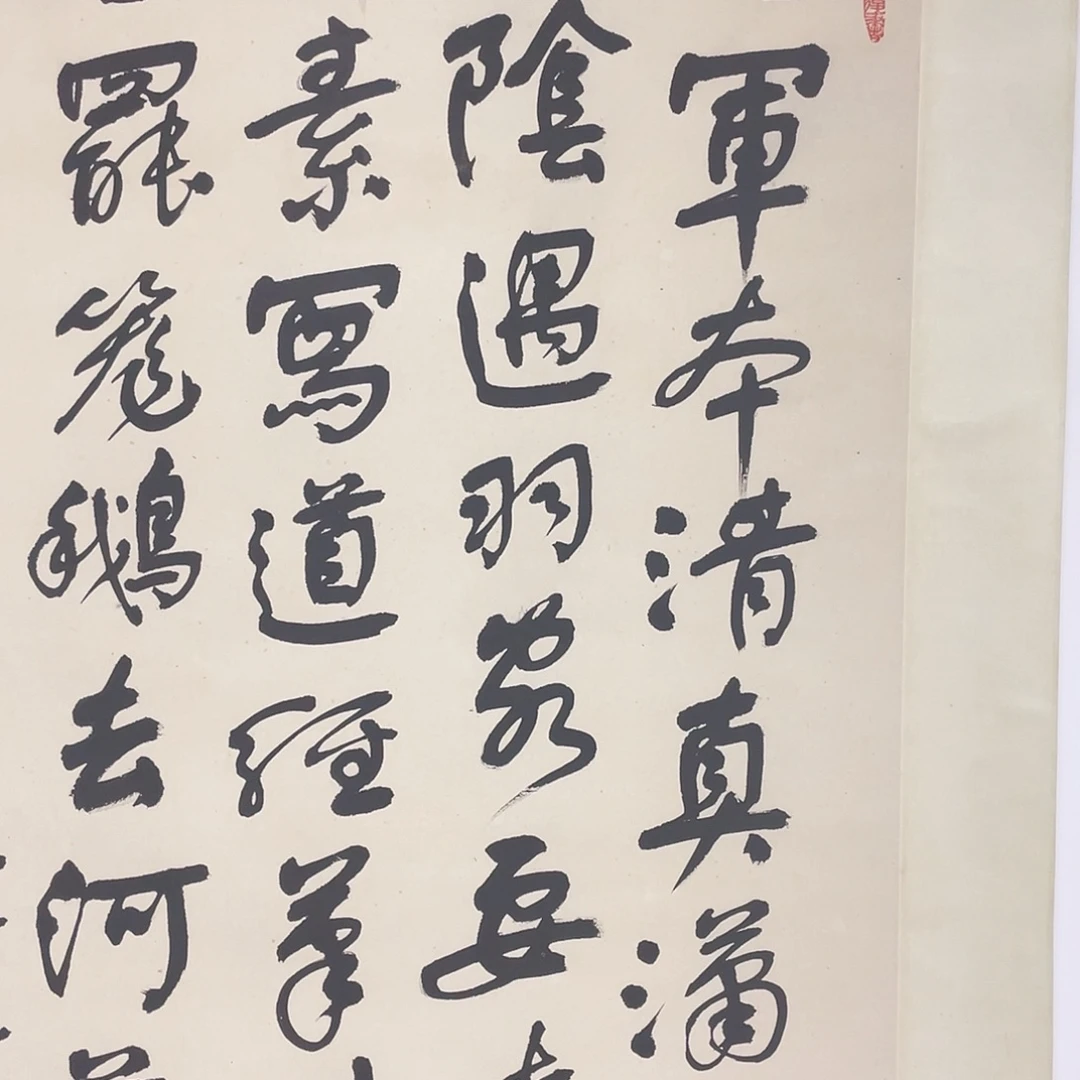 軍本清真瀟
陰遇羽客要
素寫道經筆
罷籠鵝去何